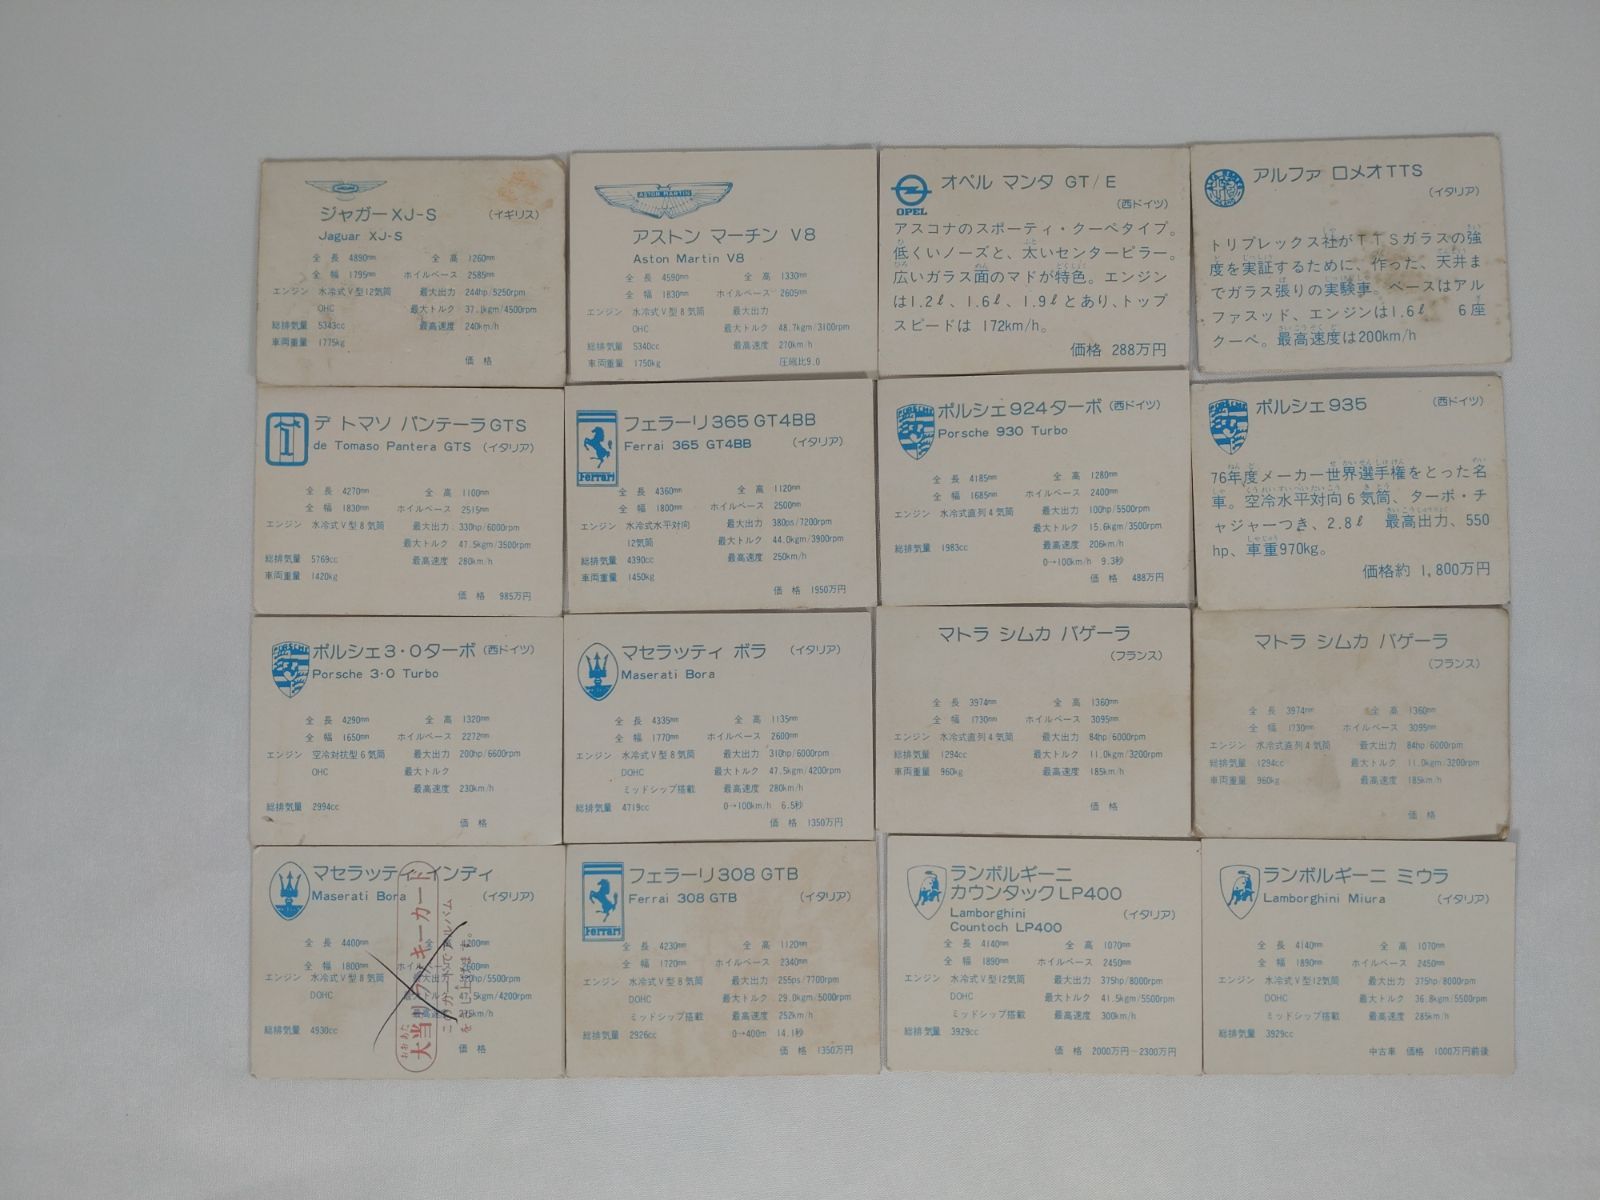 JAGUAR
ジャガー XJ-S (イギリス)
Jaguar XJ-S
全長 4890mm 全高 1260mm
全幅 1795mm ホイルベース 2585mm
エンジン 水冷式V型12気筒 最大出力 244hp/5250rpm
OHC 最大トルク 37.1kgm/4500rpm
総排気量 5343cc 最高速度 240km/h
車両重量 1775kg
価格
ASTON MARTIN
アストン マーチン V8
Aston Martin V8
全長 4590mm 全高 1330mm
全幅 1830mm ホイルベース 2605mm
エンジン 水冷式V型8気筒 最大出力
OHC 最大トルク 48.7kgm/3100rpm
総排気量 5340cc 最高速度 270km/h
車両重量 1750kg 圧縮比9.0
OPEL
オペル マンタ GT/E
(西ドイツ)
アスコナのスポーティ・クーペタイプ。
低くいノーズと、太いセンターピラー。
広いガラス面のマドが特色。エンジン
は1.2ℓ、1.6ℓ、1.9ℓとあり、トップ
スピードは 172km/h。
価格 288万円
アルファ ロメオTTS
(イタリア)
トリプレックス社がTTSガラスの強
度を実証するために、作った、天井ま
でガラス張りの実験車。ベースはアル
ファスッド、エンジンは1.6ℓ 6座
クーペ。最高速度は200km/h
デ トマソ パンテーラGTS
de Tomaso Pantera GTS (イタリア)
全長 4270mm 全高 1100mm
全幅 1830mm ホイルベース 2515mm
エンジン 水冷式V型8気筒 最大出力 330hp/6000rpm
最大トルク 47.5kgm/3500rpm
総排気量 5769cc 最高速度 280km/h
車両重量 1420kg
価格 985万円
Ferrari
フェラーリ365 GT4BB
Ferrai 365 GT4BB (イタリア)
全長 4360mm 全高 1120mm
全幅 1800mm ホイルベース 2500mm
エンジン 水冷式水平対向 最大出力 380ps/7200rpm
12気筒 最大トルク 44.0kgm/3900rpm
総排気量 4390cc 最高速度 250km/h
車両重量 1450kg
価格 1950万円
PORSCHE
ポルシェ924ターボ (西ドイツ)
Porsche 930 Turbo
全長 4185mm 全高 1280mm
全幅 1685mm ホイルベース 2400mm
エンジン 水冷式直列4気筒 最大出力 100hp/5500rpm
最大トルク 15.6kgm/3500rpm
総排気量 1983cc 最高速度 206km/h
0→100km/h 9.3秒
価格 488万円
PORSCHE
ポルシェ935 (西ドイツ)
76年度メーカー世界選手権をとった名
車。空冷水平対向6気筒、ターボ・チ
ャジャーつき、2.8ℓ 最高出力、550
hp、車重970kg。
価格約 1,800万円
PORSCHE
ポルシェ3・0ターボ (西ドイツ)
Porsche 3・0 Turbo
全長 4290mm 全高 1320mm
全幅 1650mm ホイルベース 2272mm
エンジン 空冷対抗型6気筒 最大出力 200hp/6600rpm
OHC 最大トルク
最高速度 230km/h
総排気量 2994cc
価格
マセラッティ ボラ (イタリア)
Maserati Bora
全長 4335mm 全高 1135mm
全幅 1770mm ホイルベース 2600mm
エンジン 水冷式V型8気筒 最大出力 310hp/6000rpm
DOHC 最大トルク 47.5kgm/4200rpm
ミッドシップ搭載 最高速度 280km/h
総排気量 4719cc 0→100km/h 6.5秒
価格 1350万円
マトラ シムカ バゲーラ
(フランス)
全長 3974mm 全高 1360mm
全幅 1730mm ホイルベース 3095mm
エンジン 水冷式直列4気筒 最大出力 84hp/6000rpm
総排気量 1294cc 最大トルク 11.0kgm/3200rpm
車両重量 960kg 最高速度 185km/h
価格
マトラ シムカ バゲーラ
(フランス)
全長 3974mm 全高 1360mm
全幅 1730mm ホイルベース 3095mm
エンジン 水冷式直列4気筒 最大出力 84hp/6000rpm
総排気量 1294cc 最大トルク 11.0kgm/3200rpm
車両重量 960kg 最高速度 185km/h
価格
マセラッティ インディ
Maserati Bora (イタリア)
全長 4400mm 全高 1200mm
全幅 1800mm ホイルベース 2600mm
エンジン 水冷式V型8気筒 最大出力 320hp/5500rpm
DOHC 最大トルク 47.5kgm/4200rpm
最高速度 275km/h
総排気量 4930cc
価格
大当りラッキーカード
このカードでアルバム
をさし上げます。
Ferrari
フェラーリ308 GTB
Ferrai 308 GTB (イタリア)
全長 4230mm 全高 1120mm
全幅 1720mm ホイルベース 2340mm
エンジン 水冷式V型8気筒 最大出力 255ps/7700rpm
DOHC 最大トルク 29.0kgm/5000rpm
ミッドシップ搭載 最高速度 252km/h
総排気量 2926cc 0→400m 14.1秒
価格 1350万円
ランボルギーニ
カウンタックLP400
Lamborghini (イタリア)
Countoch LP400
全長 4140mm 全高 1070mm
全幅 1890mm ホイルベース 2450mm
エンジン 水冷式V型12気筒 最大出力 375hp/8000rpm
DOHC 最大トルク 41.5kgm/5500rpm
ミッドシップ搭載 最高速度 300km/h
総排気量 3929cc
価格 2000万円〜2300万円
ランボルギーニ ミウラ
Lamborghini Miura (イタリア)
全長 4140mm 全高 1070mm
全幅 1890mm ホイルベース 2450mm
エンジン 水冷式V型12気筒 最大出力 375hp/8000rpm
DOHC 最大トルク 36.8kgm/5500rpm
ミッドシップ搭載 最高速度 285km/h
総排気量 3929cc
中古車 価格 1000万円前後